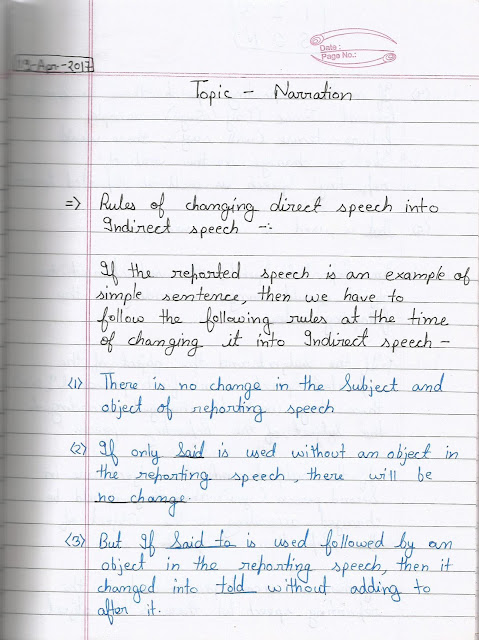 Date :
Page No.:
13-Apr-2017
Topic - Narration
=> Rules of changing direct speech into
Indirect speech -:
If the reported speech is an example of
simple sentence, then we have to
follow the following rules at the time
of changing it into Indirect speech -
<1> There is no change in the Subject and
object of reporting speech
<2> If only Said is used without an object in
the reporting speech, there will be
no change.
<3> But If Said to is used followed by an
object in the reporting speech, then it
changed into told without adding to
after it.